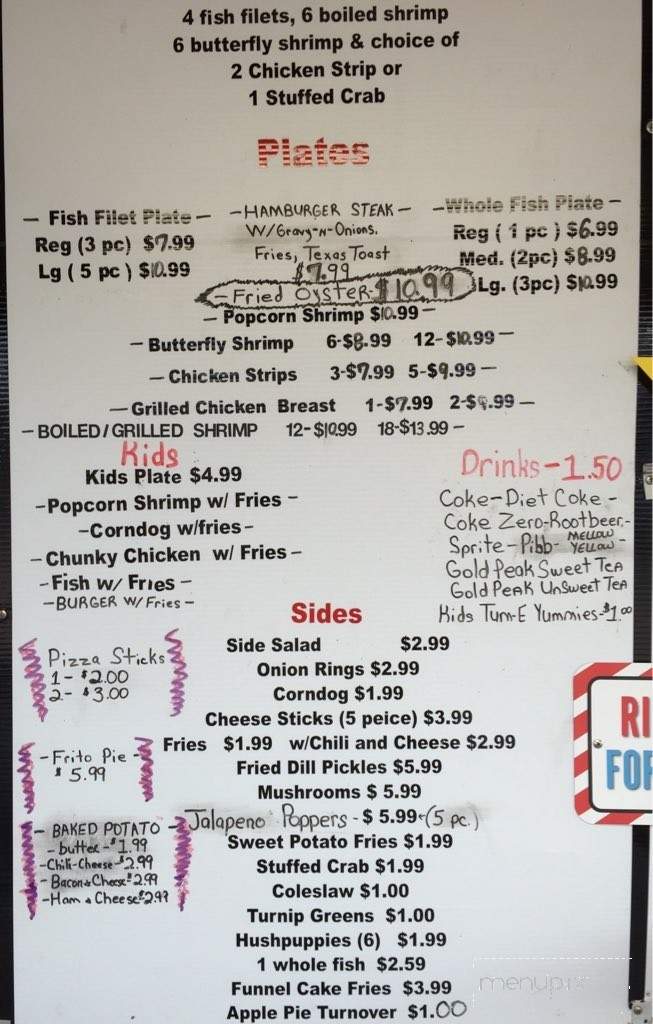 4 fish filets, 6 boiled shrimp
6 butterfly shrimp & choice of
2 Chicken Strip or
1 Stuffed Crab
Plates
– Fish Filet Plate –
Reg (3 pc) $7.99
Lg ( 5 pc ) $10.99
– HAMBURGER STEAK –
W/Gravy-N-Onions.
Fries, Texas Toast
$7.99
– Whole Fish Plate –
Reg ( 1 pc ) $6.99
Med. (2pc) $8.99
Lg. (3pc) $10.99
– Fried OYSTER- $10.99
– Popcorn Shrimp $10.99 –
– Butterfly Shrimp 6-$8.99 12-$10.99 –
– Chicken Strips 3-$7.99 5-$9.99 –
– Grilled Chicken Breast 1-$7.99 2-$9.99 –
– BOILED/GRILLED SHRIMP 12-$10.99 18-$13.99 –
Kids
Kids Plate $4.99
-Popcorn Shrimp w/ Fries -
-Corndog w/fries -
- Chunky Chicken w/ Fries -
- Fish w/ Fries -
- BURGER W/Fries -
Drinks-1.50
Coke-Diet Coke -
Coke Zero-Rootbeer.-
Sprite-Pibb- MELLOW YELLOW -
Gold Peak Sweet TEA
Gold PEAK UnSweet TEA
Kids Turn-E Yummies-$1.00
Pizza Sticks
1- $2.00
2- $3.00
-Frito Pie -
$5.99
- BAKED POTATO -
- butter-$1.99
-Chili-Cheese-$2.99
- Bacon & Cheese $2.99
-Ham & Cheese $2.99
Sides
Side Salad $2.99
Onion Rings $2.99
Corndog $1.99
Cheese Sticks (5 peice) $3.99
Fries $1.99 w/Chili and Cheese $2.99
Fried Dill Pickles $5.99
Mushrooms $ 5.99
Jalapeno Poppers - $ 5.99 - (5 pc.)
Sweet Potato Fries $1.99
Stuffed Crab $1.99
Coleslaw $1.00
Turnip Greens $1.00
Hushpuppies (6) $1.99
1 whole fish $2.59
Funnel Cake Fries $3.99
Apple Pie Turnover $1.00
RI
FOR
menupix